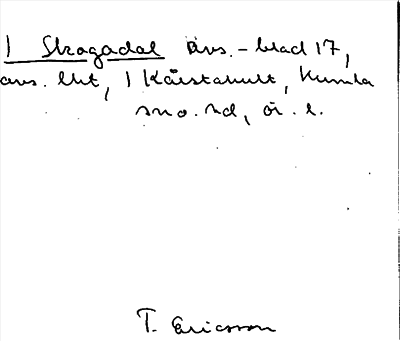 1 Skogadal avs.-blad 17,
avs. lht, 1 Kårstahult, Kumla
sno. hd, ör. l.
T. Ericsson